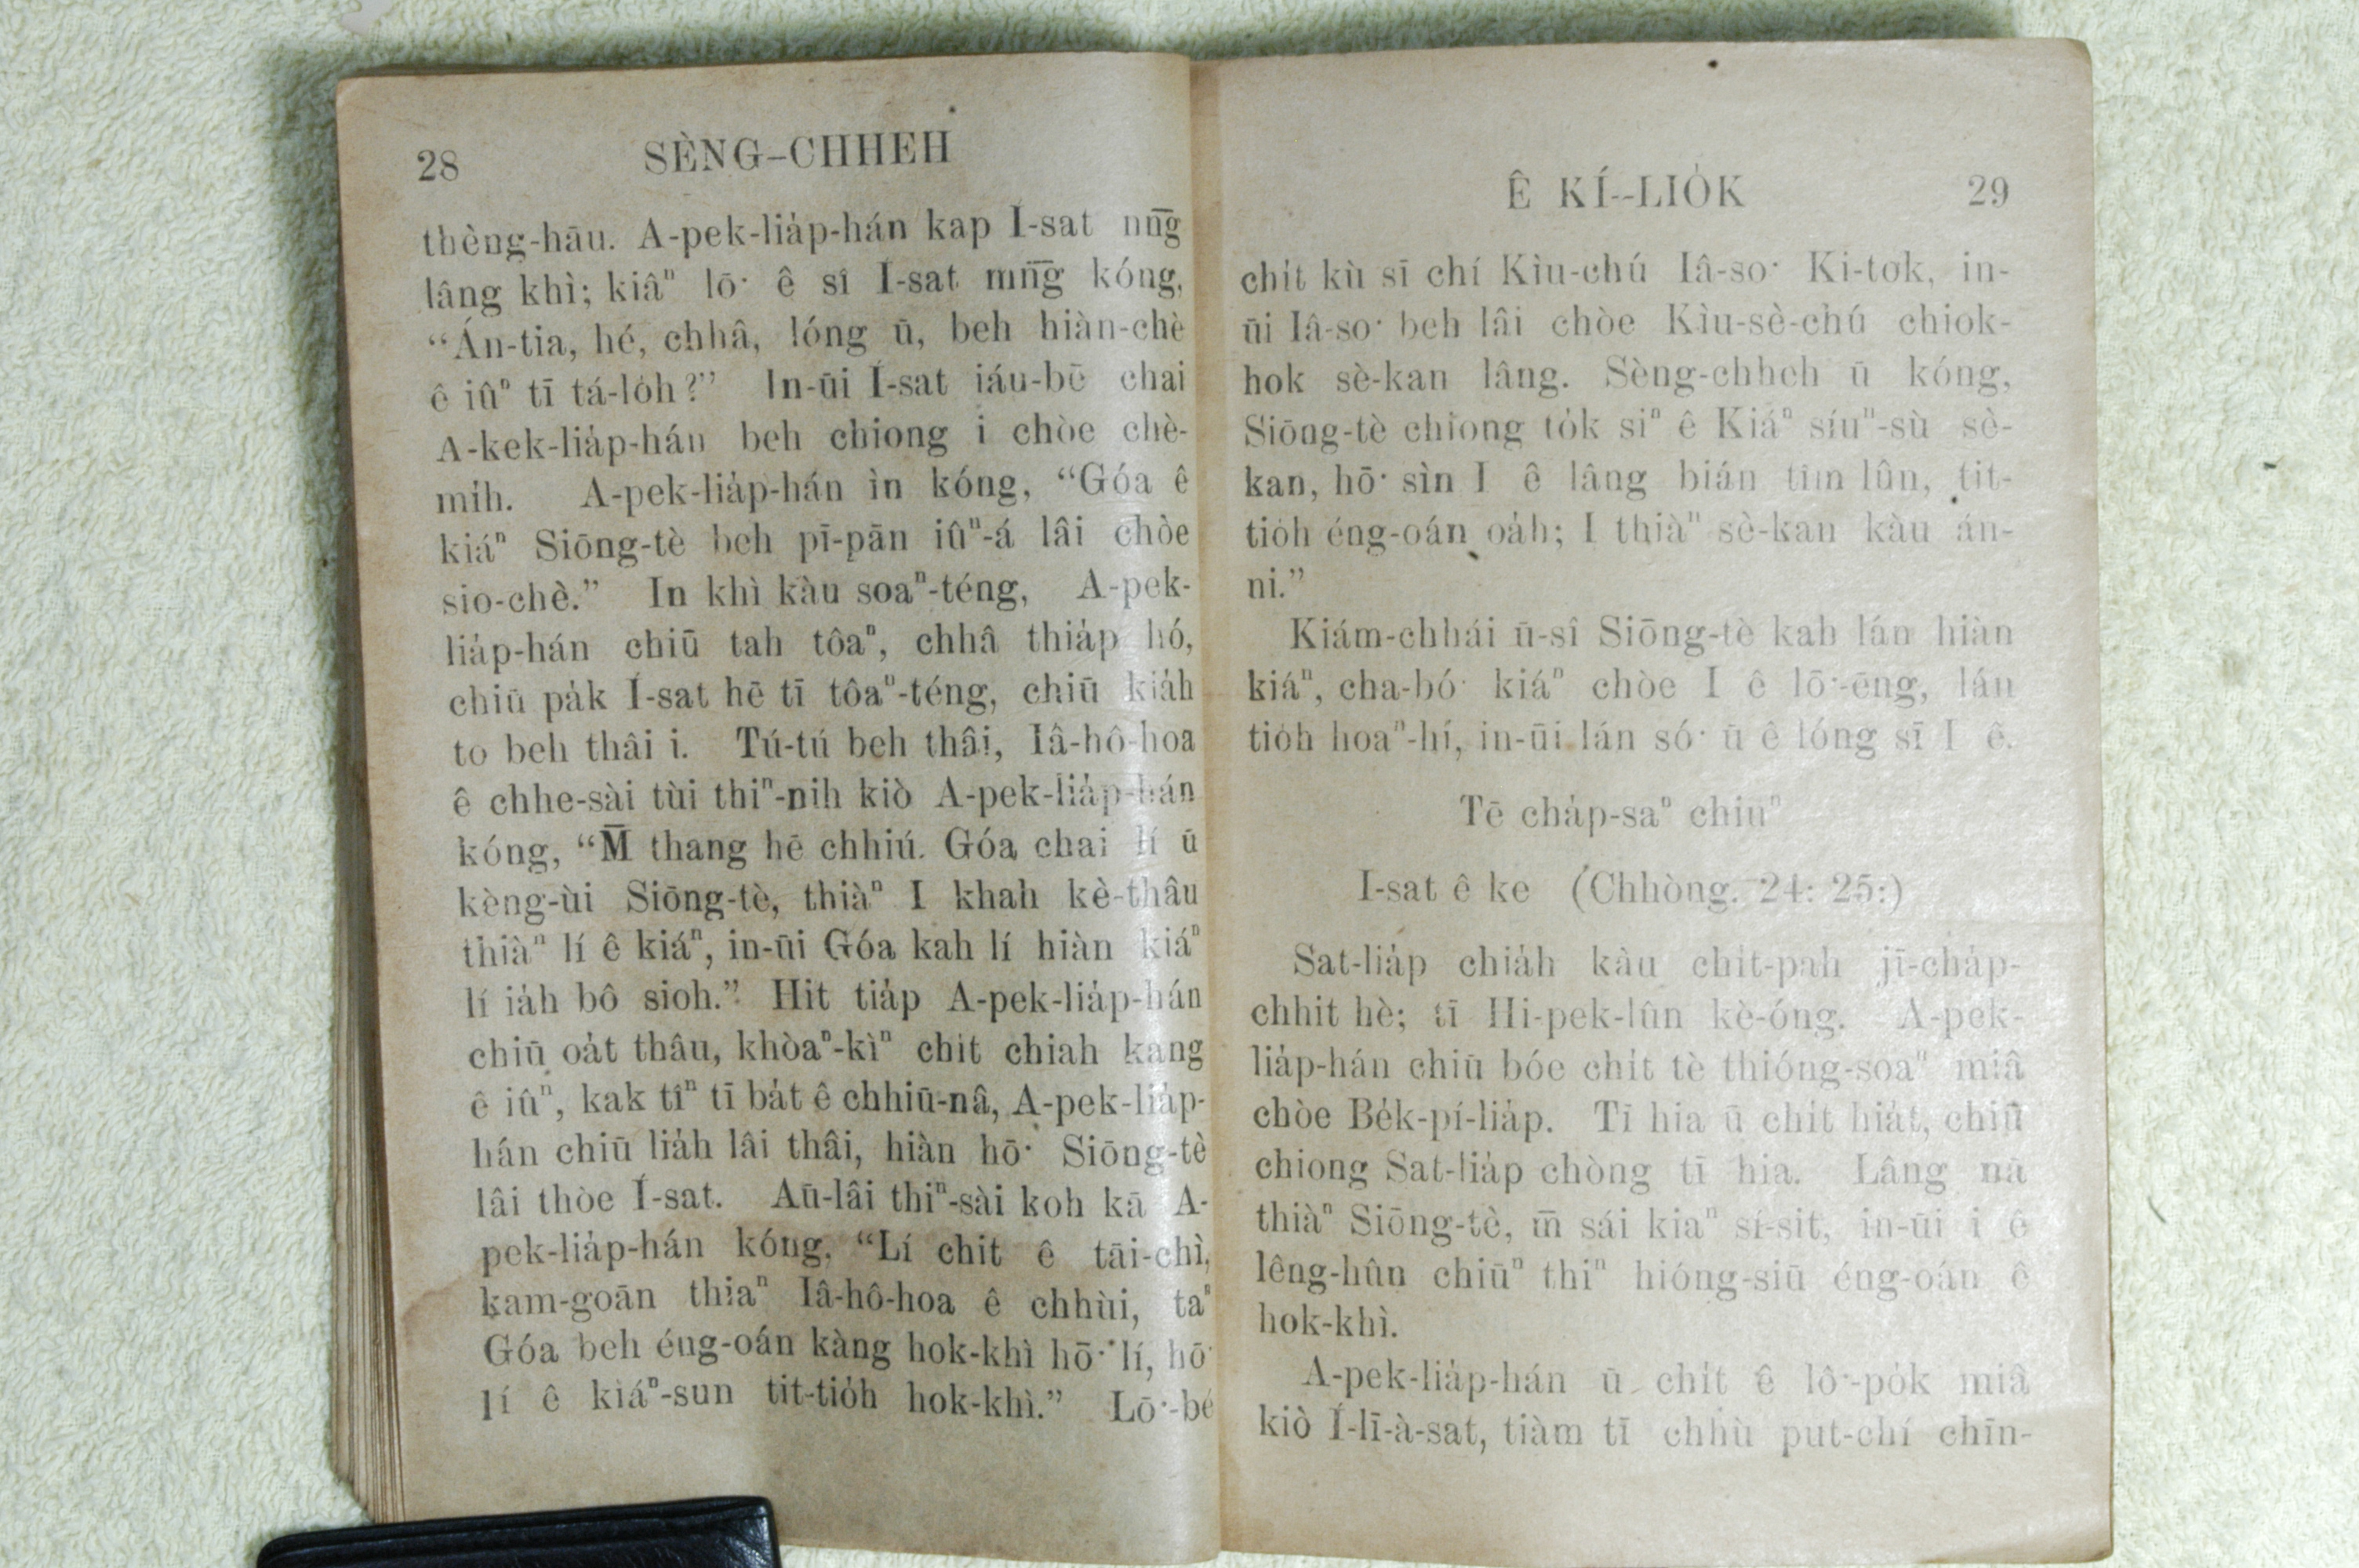 28 SÈNG-CHHEH
thèng-hāu. A-pek-lia̍p-hán kap I-sat nn̄g
lâng khì; kiâⁿ lō͘ ê sî I-sat mn̄g kóng,
“Án-tia, hé, chhâ, lóng ū, beh hiàn-chè
ê iûⁿ tī tá-lo̍h?” In-ūi Í-sat iáu-bē chai
A-kek-lia̍p-hán beh chiong i chòe chè-
mi̍h. A-pek-lia̍p-hán ìn kóng, “Góa ê
kiáⁿ Siōng-tè beh pī-pān iûⁿ-á lâi chòe
sio-chè.” In khì kàu soaⁿ-téng, A-pek-
lia̍p-hán chiū tah tôaⁿ, chhâ thia̍p hó,
chiū pa̍k Í-sat hē tī tôaⁿ-téng, chiū kia̍h
to beh thâi i. Tú-tú beh thâi, Iâ-hô-hoa
ê chhe-sài tùi thiⁿ-nih kiò A-pek-lia̍p-hán
kóng, “M̄ thang hē chhiú. Góa chai lí ū
kèng-ùi Siōng-tè, thiàⁿ I khah kè-thâu
thiàⁿ lí ê kiáⁿ, in-ūi Góa kah lí hiàn kiáⁿ
lí ia̍h bô sioh.” Hit tia̍p A-pek-lia̍p-hán
chiū oa̍t thâu, khòaⁿ-kìⁿ chi̍t chiah kang
ê iûⁿ, kak tîⁿ tī ba̍t ê chhiū-nâ, A-pek-lia̍p-
hán chiū lia̍h lâi thâi, hiàn hō͘ Siōng-tè
lâi thòe Í-sat. Aū-lâi thiⁿ-sài koh kā A-
pek-lia̍p-hán kóng, “Lí chit ê tāi-chì,
kam-goān thiaⁿ Iâ-hô-hoa ê chhùi, taⁿ
Góa beh éng-oán kàng hok-khì hō͘ lí, hō͘
lí ê kiáⁿ-sun tit-tio̍h hok-khì.” Lō͘-bé
Ê KÍ--LIO̍K 29
chi̍t kù sī chí Kìu-chú Iâ-so͘ Ki-tok, in-
ūi Iâ-so͘ beh lâi chòe Kìu-sè-chú chiok-
hok sè-kan lâng. Sèng-chheh ū kóng,
Siōng-tè chiong to̍k siⁿ ê Kiáⁿ síuⁿ-sù sè-
kan, hō͘ sìn I ê lâng bián tîm lûn, tit-
tio̍h éng-oán oa̍h; I thiàⁿ sè-kan kàu án-
ni.”
Kiám-chhái ū-sî Siōng-tè kah lán hiàn
kiáⁿ, cha-bó͘ kiáⁿ chòe I ê lō͘-ēng, lán
tio̍h hoaⁿ-hí, in-ūi lán só͘ ū ê lóng sī I ê.
Tē cha̍p-saⁿ chiuⁿ
I-sat ê ke (Chhòng. 24: 25:)
Sat-lia̍p chia̍h kàu chi̍t-pah jī-cha̍p-
chhit hè; tī Hi-pek-lûn kè-óng. A-pek-
lia̍p-hán chiū bóe chi̍t tè thióng-soaⁿ miâ
chòe Be̍k-pí-lia̍p. Tī hia ū chi̍t hia̍t, chiū
chiong Sat-lia̍p chòng tī hia. Lâng nā
thiàⁿ Siōng-tè, m̄ sái kiaⁿ sí-sit, in-ūi i ê
lêng-hûn chiūⁿ thiⁿ hióng-siū éng-oán ê
hok-khì.
A-pek-lia̍p-hán ū chi̍t ê lô͘-po̍k miâ
kiò Í-lī-à-sat, tiàm tī chhù put-chí chīn-